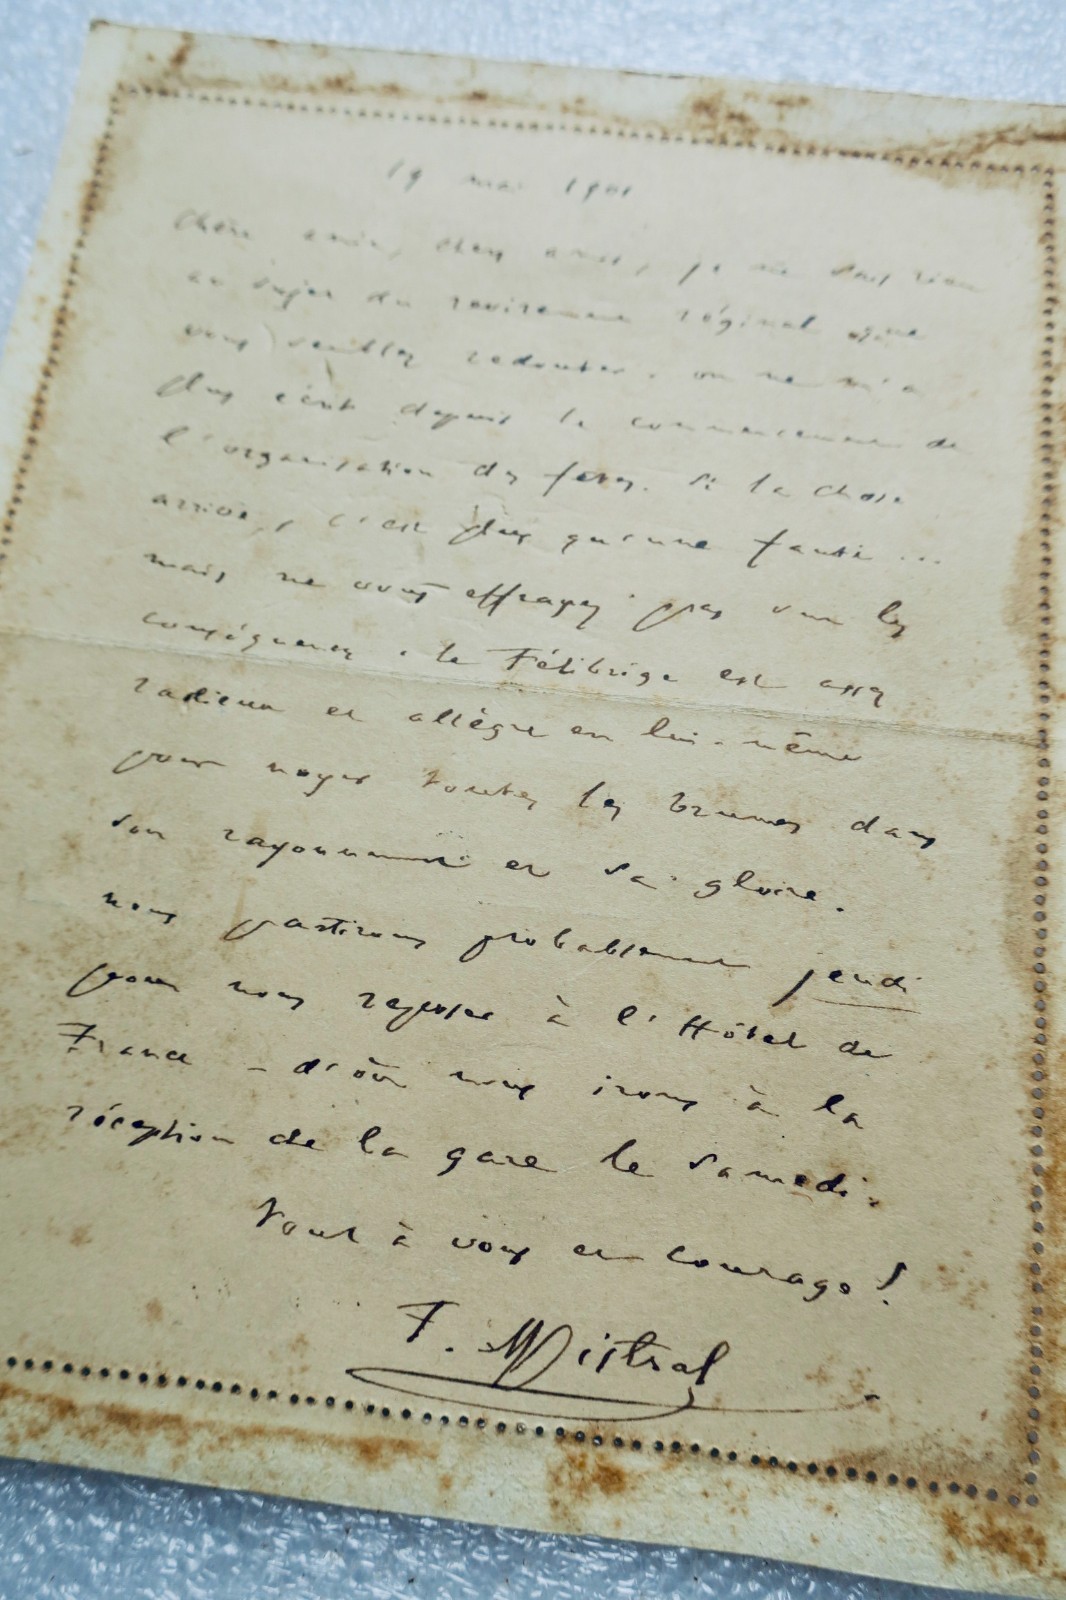 19 mai 1901
Chère amie, cher ami, je ne sais rien
au sujet du revirement réginal que
vous semblez redouter. on ne m'a
plus écrit depuis le commencement de
l'organisation des fêtes. Si la chose
arrive, c'est plus qu'une faute ...
mais ne vous effrayez pas sur les
conséquences. le Félibrige est assez
radieux et allègre en lui-même
pour noyer toutes les brumes dans
son rayonnement et sa gloire.
nous partirons probablement jeudi
pour nous reposer à l'Hôtel de
France – d'où nous irons à la
réception de la gare le samedi.
Tout à vous et courage !
F. Mistral